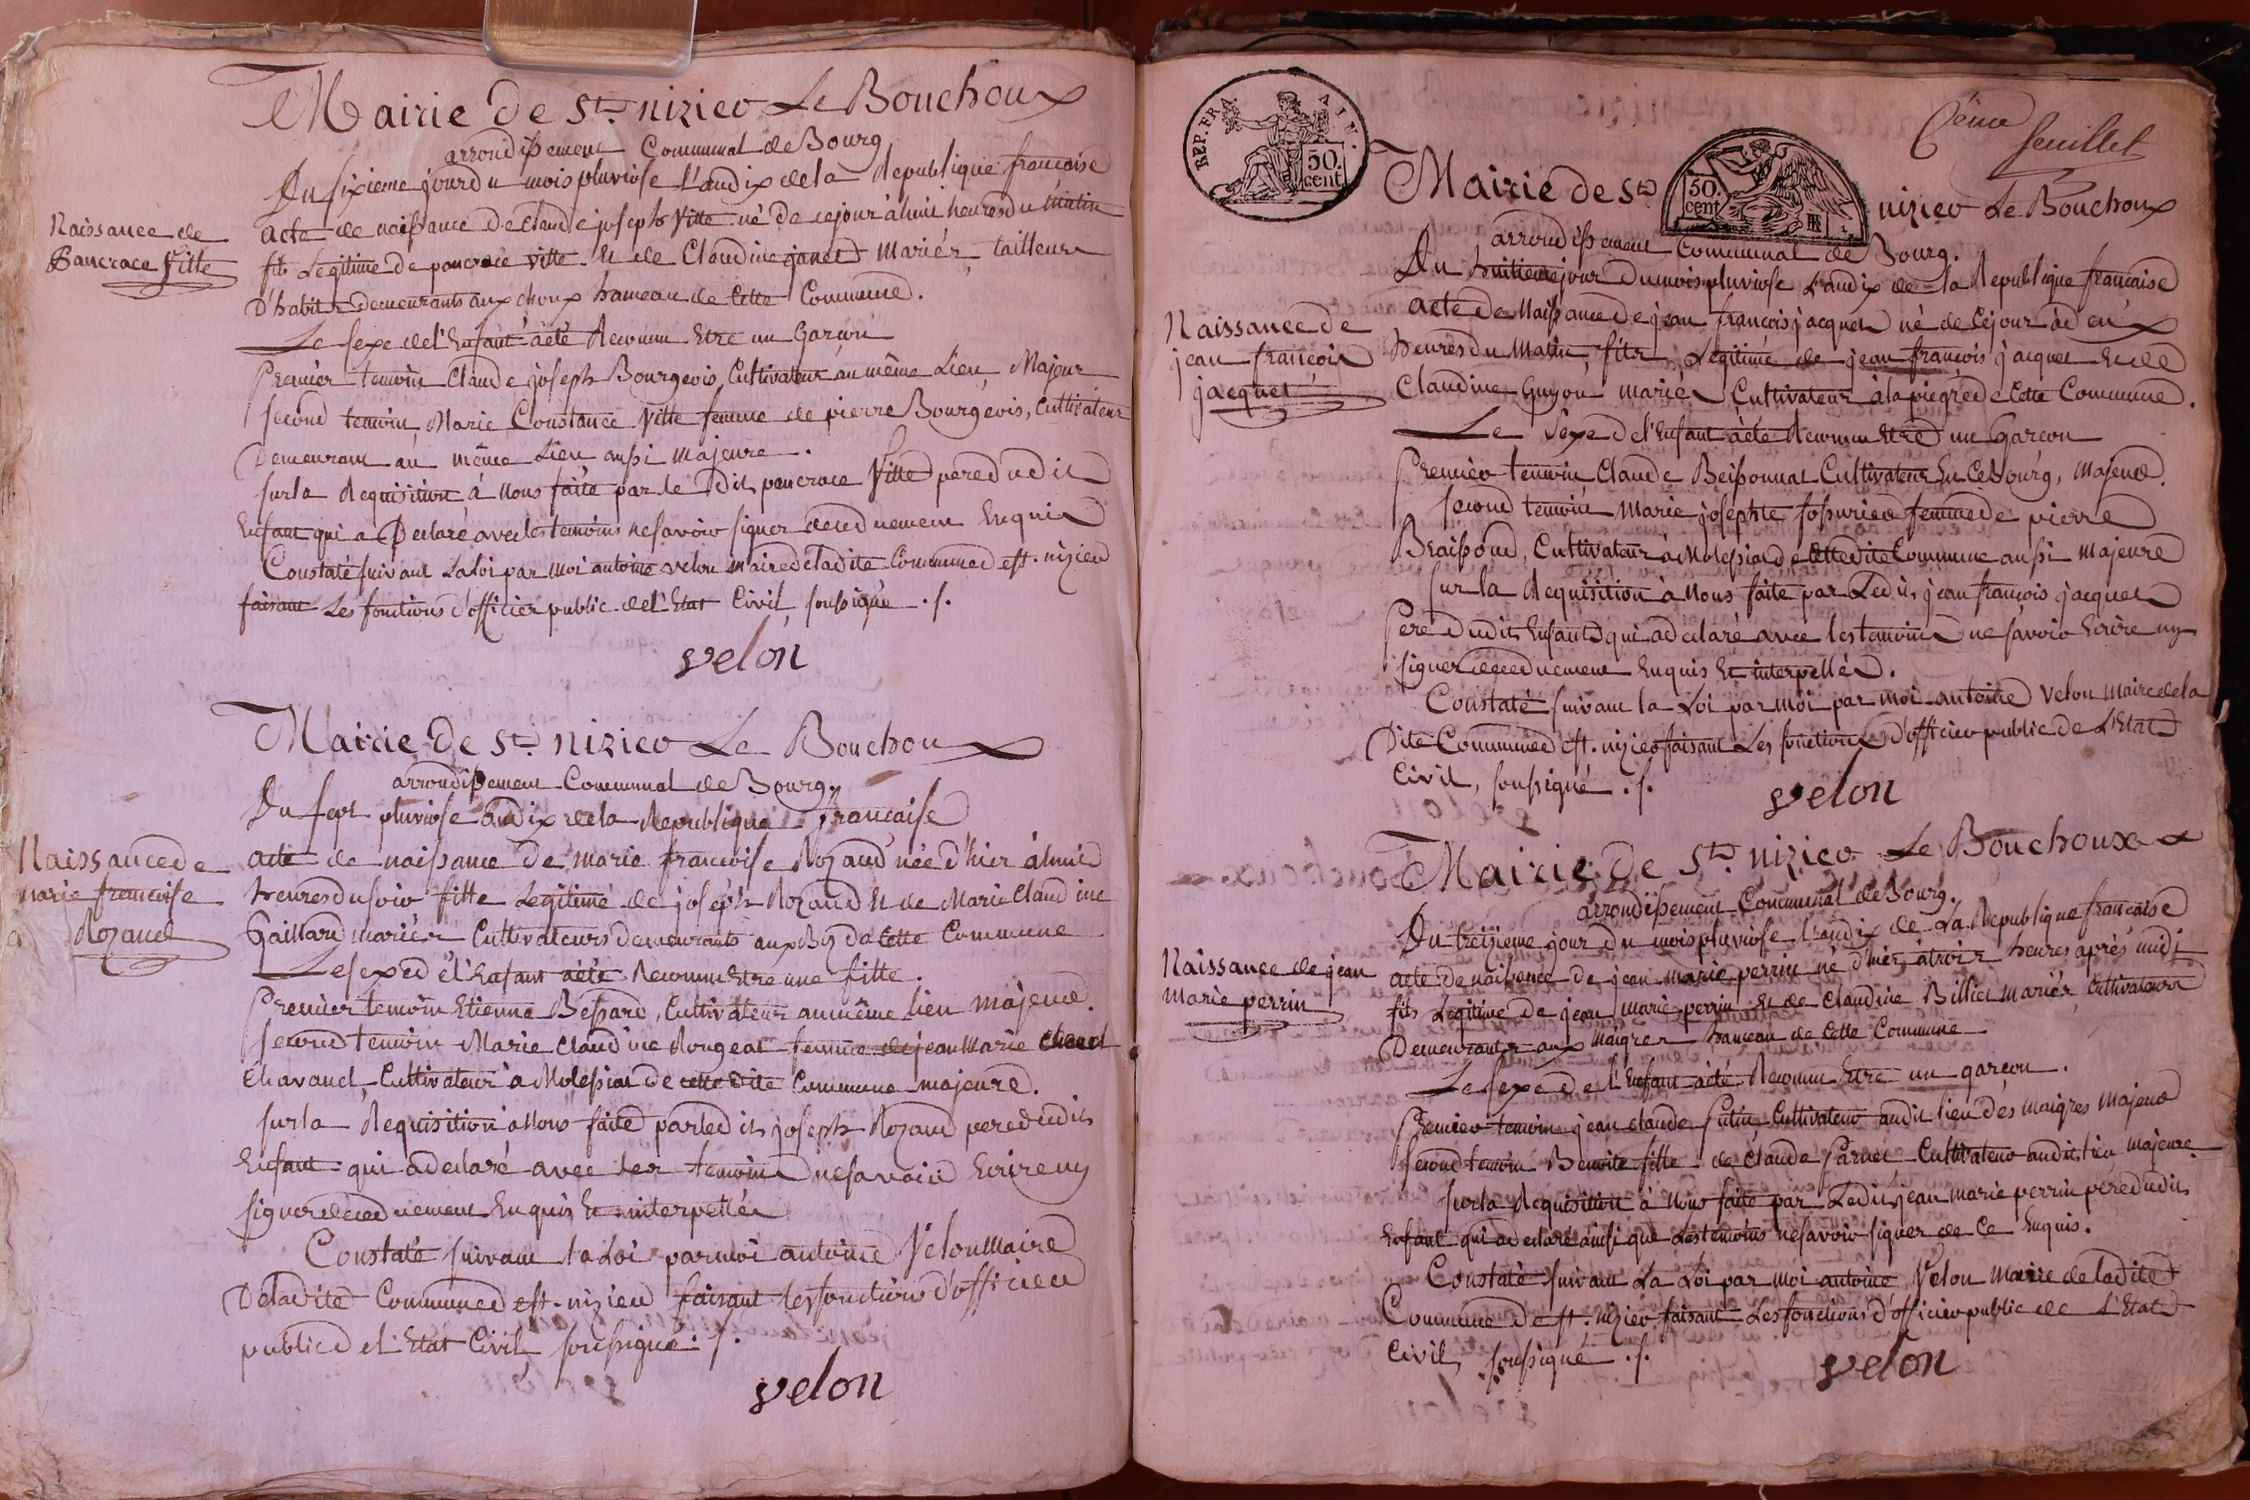 Mairie de St. nizier Le Bouchoux
arrondissement Communal de Bourg
Du sixieme jour du mois pluviose L'an dix de la Republique francaise
Naissance de
Pancrace Vitte
acte de naissance de Claude joseph Vitte né de ce jour à huit heures du matin
fils Legitime de pancrace vitte et de Claudine janet mariés, tailleur
D'habits demeurants aux choux hameau de Cette Commune.
Le sexe de l'Enfant à èté Reconnu Etre un Garcon
Premier temoin Claude joseph Bourgeois Cultivateur au même Lieu, Majeur
second temoin, Marie Constance Vitte femme de pierre Bourgeois, Cultivateur
Demeurant au même Lieu aussi majeure.
sur la Requisition à Nous faite par le dit pancrace Vitte pere du dit
Enfant qui a Declaré avec les temoins ne savoir signer de ce duement Enquis
Constaté suivant La loi par moi antoine velon maire de ladite Commune de st. nizier
faisant Les fonctions d'officier public de l'Etat Civil soussigné ./.
velon
Mairie de St. nizier Le Bouchoux
arrondissement Communal de Bourg,
Du sept pluviose an dix de la Republique francaise
Naissance de
marie francoise
Rozand
acte de naissance de marie francoise Rozand née d'hier à huit
heures du soir fille Legitime de joseph Rozand Et de Marie Claudine
Gaillard mariés Cultivateurs demeurants aux Bys de Cette Commune
Le sexe de l'Enfant à èté Reconnu Etre une fille.
Premier temoin Etienne Bessard, Cultivateur au même lien majeur.
second temoin Marie Claudine Rongeat femme de jean Marie
Chavand, Cultivateur à Molessiat de cette dite Commune majeure.
sur la Requisition à Nous faite par le dit joseph Rozand pere du dit
Enfant qui a declaré avec les temoins ne savoir Ecrire ny
signer de ce duement Enquis Et interpellés
Constaté suivant la Loi par moi antoine Velon Maire
De ladite Commune de st. nizier faisant les fonctions d'officier
public de l'Etat Civil soussigné ./.
velon
REP. FRA. AIN.
50. cent
6eme
feuillet
50. cent
Mairie de St. nizier Le Bouchoux
arrondissement Communal de Bourg.
Du huitieme jour du mois pluviose L'an dix de la Republique francaise
Naissance de
jean francois
jacquet
acte de Naissance de jean francois jacquet né de ce jour à deux
heures du Matin, fils Legitime de jean francois jacquet et de
Claudine Guyon mariés Cultivateur à la piegre de Cette Commune.
Le sexe de l'Enfant à èté Reconnu Etre un Garcon
Premier temoin Claude Beissonnat Cultivateur En Ce Bourg, majeur.
second temoin Marie josephte femme de pierre
Braissoud, Cultivateur à Molessiat de cette dite Commune aussi majeure
sur la Requisition à Nous faite par Le dit jean francois jacquet
Pere du dit Enfant qui a declaré avec les temoins ne savoir Ecrire ny
signer de ce duement Enquis Et interpellés.
Constaté suivant la Loi par moi par moi antoine velon maire de la
Dite Commune de st. nizier faisant Les fonctions d'officier public de L'Etat
Civil, soussigné ./.
velon
Mairie de St. nizier Le Bouchoux
arrondissement Communal de Bourg.
Du treizieme jour du mois pluviose L'an dix de La Republique francaise
Naissance de jean
marie perrin
acte de naissance de jean marie perrin né d'hier à trois heures après midi
fils Legitime de jean marie perrin Et de Claudine Billiet mariés, Cultivateurs
Demeurants aux maigres hameau de Cette Commune
Le sexe de l'Enfant à èté Reconnu Etre un garcon.
Premier temoin jean claude Cultivateur audit lieu des maigres majeur
second temoin Benoite fille de Claude Cultivateur audit lieu majeure.
sur la Requisition à Nous faite par Le dit jean marie perrin pere du dit
Enfant qui a declaré ainsi que Les temoins ne savoir signer de Ce Enquis.
Constaté suivant La Loi par moi antoine Velon Maire de ladite
Commune de st. nizier faisant Les fonctions d'officier public de L'Etat
Civil, soussigné ./.
velon